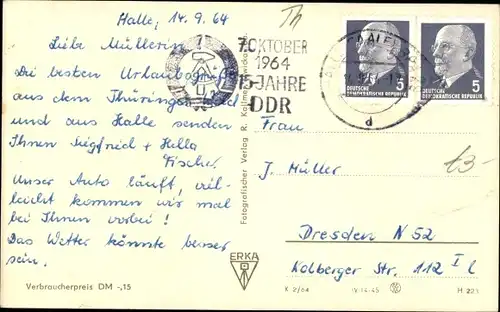 Halle, 14.9.64
Liebe Müllerin
Die besten Urlaubsgrüße
aus dem Thüringer Wald
und aus Halle senden
Ihnen Siegfried + Hella
Fischer.
Unser Auto läuft, viel-
leicht kommen wir mal
bei Ihnen vorbei!
Das Wetter könnte besser
sein.
Verbraucherpreis DM -,15
7. OKTOBER
1964
15 JAHRE
DDR
Fotografischer Verlag R. Kallmer
ERKA
Th
5
DEUTSCHE
DEMOKRATISCHE REPUBLIK
5
DEUTSCHE
DEMOKRATISCHE REPUBLIK
d
Frau
J. Müller
13-
Dresden N 52
Kolberger Str. 112 I l
K 2/64 IV-14-45 H 221